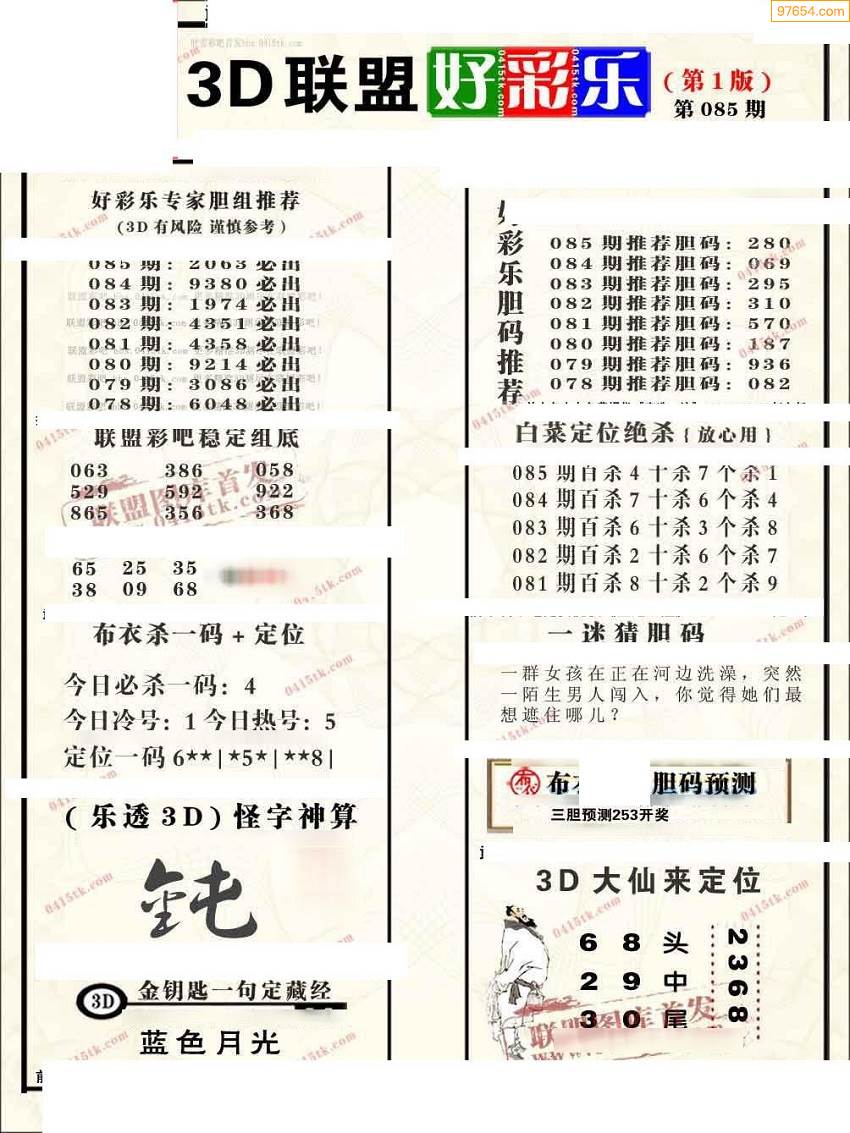 97654.com
3D联盟好彩乐
(第1版)
第085期
好彩乐专家胆组推荐
(3D有风险 谨慎参考)
085期: 2063必出
084期: 9380必出
083期: 1974必出
082期: 4351必出
081期: 4358必出
080期: 9214必出
079期: 3086必出
078期: 6048必出
联盟彩吧稳定组底
063 386 058
529 592 922
865 356 368
65 25 35
38 09 68
布衣杀一码+定位
今日必杀一码: 4
今日冷号: 1 今日热号: 5
定位一码 6**|*5*|**8|
(乐透3D)怪字神算
3D
金钥匙一句定藏经
蓝色月光
好彩乐胆码推荐
085期推荐胆码: 280
084期推荐胆码: 069
083期推荐胆码: 295
082期推荐胆码: 310
081期推荐胆码: 570
080期推荐胆码: 187
079期推荐胆码: 936
078期推荐胆码: 082
白菜定位绝杀{放心用}
085期百杀4十杀7个杀1
084期百杀7十杀6个杀4
083期百杀6十杀3个杀8
082期百杀2十杀6个杀7
081期百杀8十杀2个杀9
一迷猜胆码
一群女孩在正在河边洗澡，突然
一陌生男人闯入，你觉得她们最
想遮住哪儿?
布衣
胆码预测
三胆预测253开奖
3D大仙来定位
6 8 头
2 9 中
3 0 尾
2368
联盟图库首发
0415tk.com